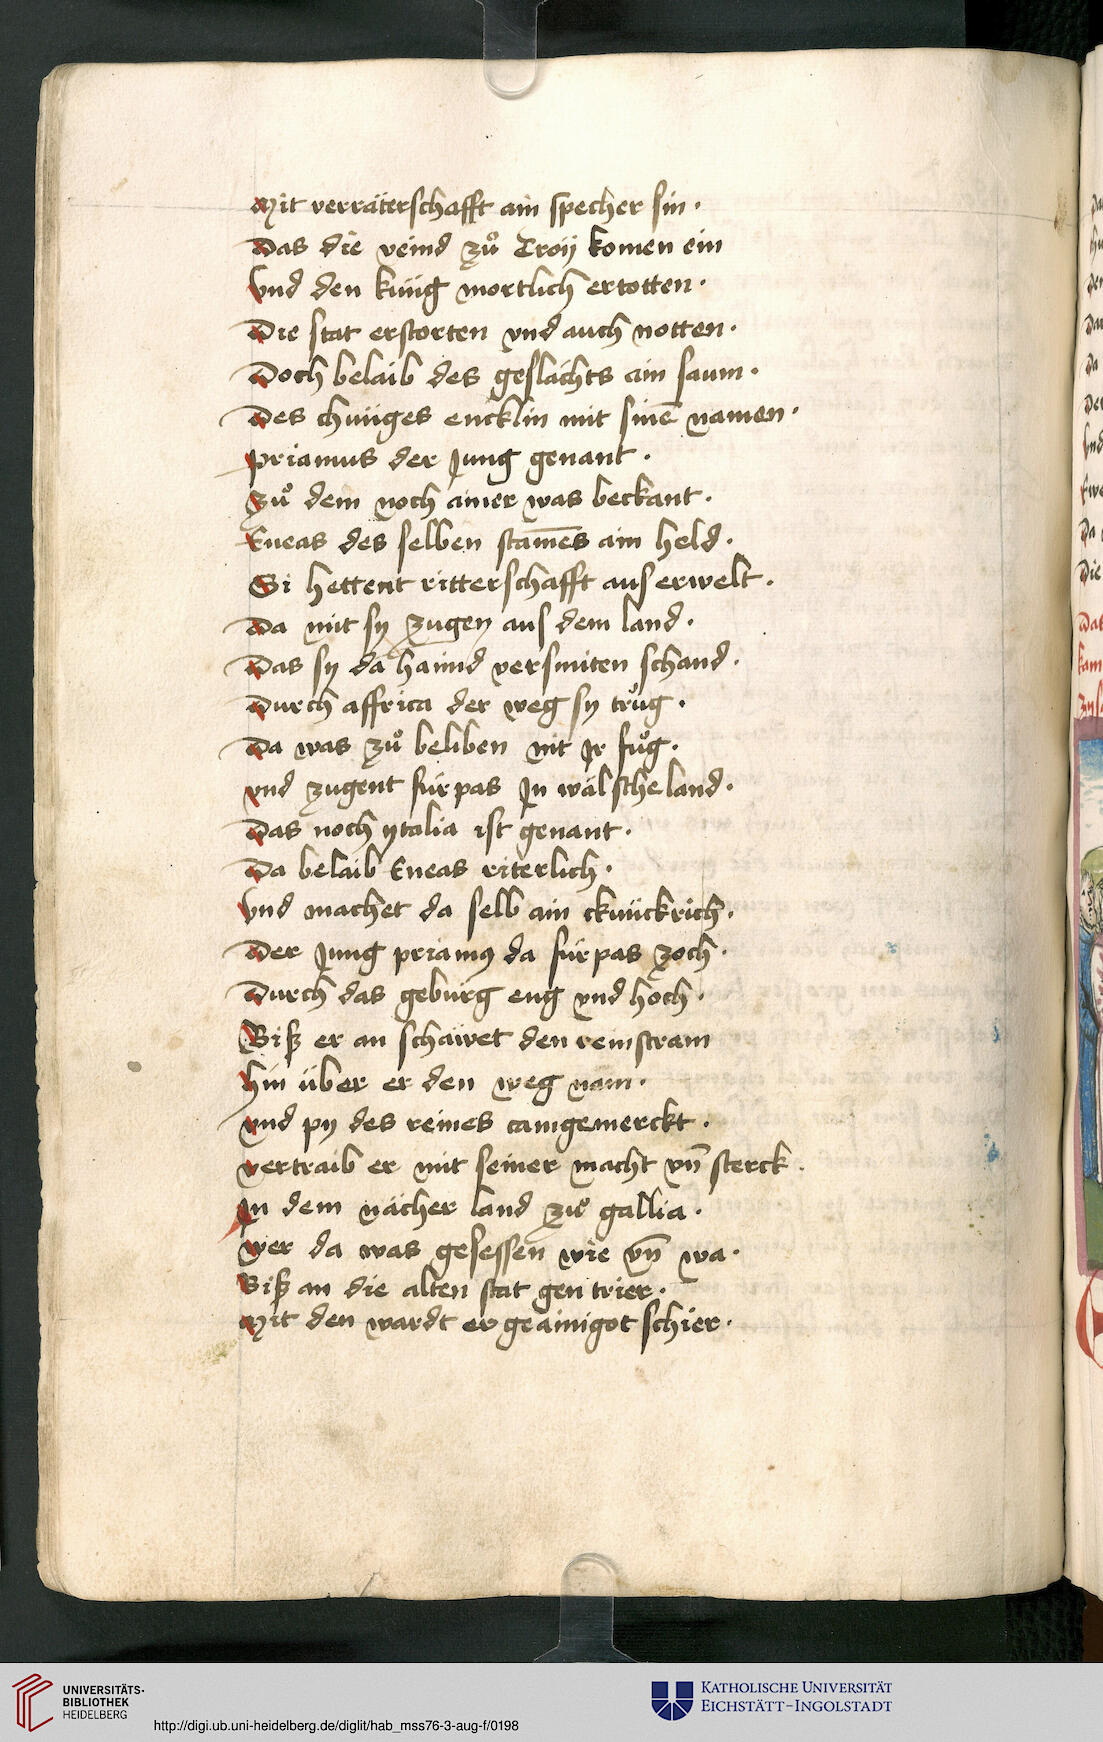 Mit verräterschafft ain specher sin ·
Das die veind zů Troij komen ein
Vnd den küng mortlich ertotten ·
Die stat erstorten vnd auch notten ·
Doch belaib des geslächts ain saum ·
Des chüniges encklin mit sinē namen ·
priamus der Jung genant ·
Zů dem noch ainer was beckant ·
Eneas des selben stam̄es ain held ·
Si hettent ritterschafft aus erwelt ·
Da mit sy zugen aus dem land ·
Das sy da haimd versmiten schand ·
Durch affrica der weg sy trůg ·
Da was zů beliben nit Jr fůg ·
vnd zugent fürpas Jn wälsche land ·
Das noch ytalia ist genant ·
Da belaib Eneas riterlich ·
Vnd machet da selb ain cknückrich ·
Der Jung priamꝯ da fürpas zoch ·
Durch das gebürg eng vnd hoch ·
Biß er an schäwet den reinstram
hin über er den weg nam ·
vnd py des reines camgemerckt ·
vertraib er mit seiner macht vn̄ sterck ·
Jn dem nächer land zů gallia ·
wer da was gesessen wie vn̄ wa ·
Biß an die alten stat gen trier ·
Mit den wardt er geainigot schier ·
UNIVERSITÄTS-
BIBLIOTHEK
HEIDELBERG
http://digi.ub.uni-heidelberg.de/diglit/hab_mss76-3-aug-f/0198
KATHOLISCHE UNIVERSITÄT
EICHSTÄTT-INGOLSTADT